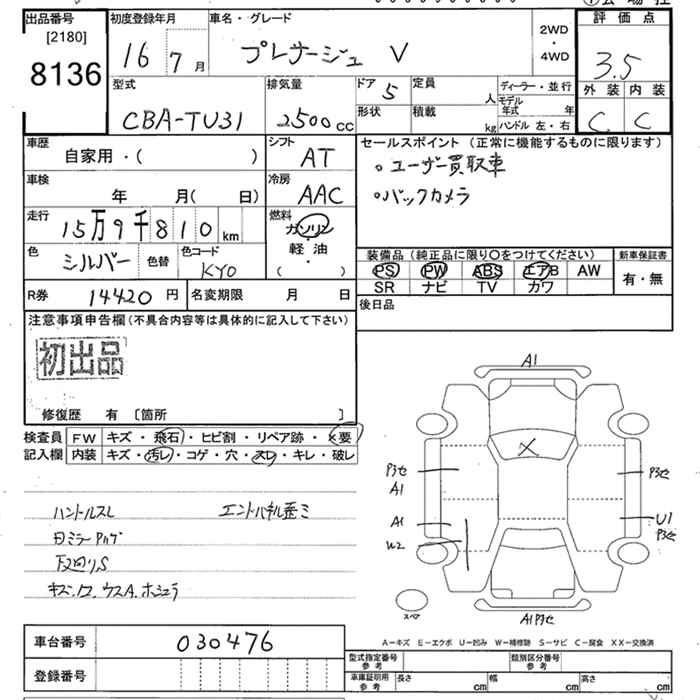 出品番号
[2180]
8136
初度登録年月
16 7月
車名・グレード
プレサージュ V
2WD
・
4WD
評価点
3.5
外装 内装
C C
型式
CBA-TU31
排気量
2500cc
ドア
5
形状
定員
人
積載
kg
ディーラー・並行
モデル年式
年
ハンドル 左・右
車歴
自家用・( )
シフト
AT
車検
年 月( 日)
冷房
AAC
走行
15万9千810km
燃料
ガソリン
軽油
( )
色
シルバー
色替
色コード
KY0
R券
14420円
名変期限 月 日
セールスポイント (正常に機能するものに限ります)
。ユーザー買取車
。バックカメラ
装備品(純正品に限り〇をつけてください)
新車保証書
PS PW ABS エアB AW
有・無
SR ナビ TV カワ
後日品
注意事項申告欄(不具合内容等は具体的に記入して下さい)
初出品
修復歴 有 〔箇所 〕
検査員
記入欄
FW キズ・飛石・ヒビ割・リペア跡・×要
内装 キズ・汚レ・コゲ・穴・スレ・キレ・破レ
ハンドルスレ
エンドパネル歪ミ
A1
X
P3セ
A1
A1
W2
P3セ
U1
P3セ
A1P3セ
スペア
A-キズ E-エクボ U-凹み W-補修跡 S-サビ C-腐食 XX-交換済
車台番号
030476
登録番号
型式指定番号
参考
類別区分番号
車庫証明用
参考
長さ cm
幅 cm
高さ cm